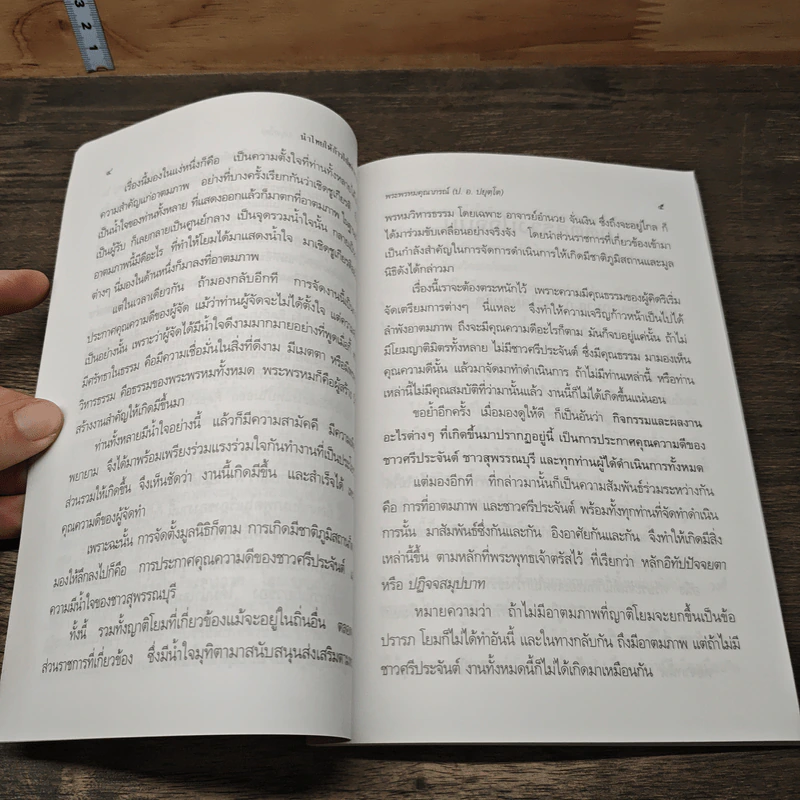 3 2 1
๔
นำไทยให้
เรื่องนี้มองในแง่หนึ่งก็คือ เป็นความตั้งใจที่ท่านทั้งหลาย
ความสำคัญแก่อาตมภาพ อย่างที่บางครั้งเรียกกันว่าเชิดชูเกียรติ
เป็นน้ำใจของท่านทั้งหลาย ที่แสดงออกแล้วก็มาตกที่อาตมภาพ
เป็นผู้รับ ก็เลยกลายเป็นศูนย์กลาง เป็นจุดรวมน้ำใจนั้น
อาตมภาพนี้มีดีอะไร ที่ทำให้โยมได้มาแสดงน้ำใจ มาเชิดชูเกียรติ
ต่างๆ นี่มองในด้านหนึ่งก็มาลงที่อาตมภาพ
แต่ในเวลาเดียวกัน ถ้ามองกลับอีกที การจัดงานนี้
ประกาศคุณความดีของผู้จัด แม้ว่าท่านผู้จัดจะไม่ได้ตั้งใจ แต่ความ
เป็นอย่างนั้น เพราะว่าผู้จัดได้มีน้ำใจดีงามมากมายอย่างที่พูดเมื่อกี้
มีศรัทธาในธรรม คือมีความเชื่อมั่นในสิ่งที่ดีงาม มีเมตตา หรือมี
วิหารธรรม คือธรรมของพระพรหมทั้งหมด พระพรหมก็คือผู้สร้าง
สร้างงานสำคัญให้เกิดมีขึ้นมา
ท่านทั้งหลายมีน้ำใจอย่างนี้ แล้วก็มีความสามัคคี มีความ
พยายาม จึงได้มาพร้อมเพรียงร่วมแรงร่วมใจกันทำงานที่เป็นประโยชน์
ส่วนรวมให้เกิดขึ้น จึงเห็นชัดว่า งานนี้เกิดมีขึ้น และสำเร็จได้
คุณความดีของผู้จัดทำ
เพราะฉะนั้น การจัดตั้งมูลนิธิก็ตาม การเกิดมีชาติภูมิสถานก็
มองให้ลึกลงไปก็คือ การประกาศคุณความดีของชาวศรีประจันต์
ความมีน้ำใจของชาวสุพรรณบุรี
ทั้งนี้ รวมทั้งญาติโยมที่เกี่ยวข้องแม้จะอยู่ในถิ่นอื่น ตลอด
ส่วนราชการที่เกี่ยวข้อง ซึ่งมีน้ำใจมุทิตามาสนับสนุนส่งเสริมตาม
พระพรหมคุณาภรณ์ (ป. อ. ปยุตฺโต)
๕
พรหมวิหารธรรม โดยเฉพาะ อาจารย์อำนวย จั่นเงิน ซึ่งถึงจะอยู่ไกล ก็
ได้มาร่วมขับเคลื่อนอย่างจริงจัง โดยนำส่วนราชการที่เกี่ยวข้องเข้ามา
เป็นกำลังสำคัญในการจัดการดำเนินการให้เกิดมีชาติภูมิสถานและมูล
นิธิดังได้กล่าวมา
เรื่องนี้เราจะต้องตระหนักไว้ เพราะความมีคุณธรรมของผู้คิดริเริ่ม
จัดเตรียมการต่างๆ นี่แหละ จึงทำให้ความเจริญก้าวหน้าเป็นไปได้
ลำพังอาตมภาพ ถึงจะมีคุณความดีอะไรก็ตาม มันก็จบอยู่แค่นั้น ถ้าไม่
มีโยมญาติมิตรทั้งหลาย ไม่มีชาวศรีประจันต์ ซึ่งมีคุณธรรม มามองเห็น
คุณความดีนั้น แล้วมาจัดมาทำดำเนินการ ถ้าไม่มีท่านเหล่านี้ หรือท่าน
เหล่านี้ไม่มีคุณสมบัติที่ว่ามานั้นแล้ว งานนี้ก็ไม่ได้เกิดขึ้นแน่นอน
ขอย้ำอีกครั้ง เมื่อมองดูให้ดี ก็เป็นอันว่า กิจกรรมและผลงาน
อะไรต่างๆ ที่เกิดขึ้นมาปรากฏอยู่นี้ เป็นการประกาศคุณความดีของ
ชาวศรีประจันต์ ชาวสุพรรณบุรี และทุกท่านผู้ได้ดำเนินการทั้งหมด
แต่มองอีกที ที่กล่าวมานั้นก็เป็นความสัมพันธ์ร่วมระหว่างกัน
คือ การที่อาตมภาพ และชาวศรีประจันต์ พร้อมทั้งทุกท่านที่จัดทำดำเนิน
การนั้น มาสัมพันธ์ซึ่งกันและกัน อิงอาศัยกันและกัน จึงทำให้เกิดมีสิ่ง
เหล่านี้ขึ้น ตามหลักที่พระพุทธเจ้าตรัสไว้ ที่เรียกว่า หลักอิทัปปัจจยตา
หรือ ปฏิจจสมุปบาท
หมายความว่า ถ้าไม่มีอาตมภาพที่ญาติโยมจะยกขึ้นเป็นข้อ
ปรารภ โยมก็ไม่ได้ทำอันนี้ และในทางกลับกัน ถึงมีอาตมภาพ แต่ถ้าไม่มี
ชาวศรีประจันต์ งานทั้งหมดนี้ก็ไม่ได้เกิดมาเหมือนกัน